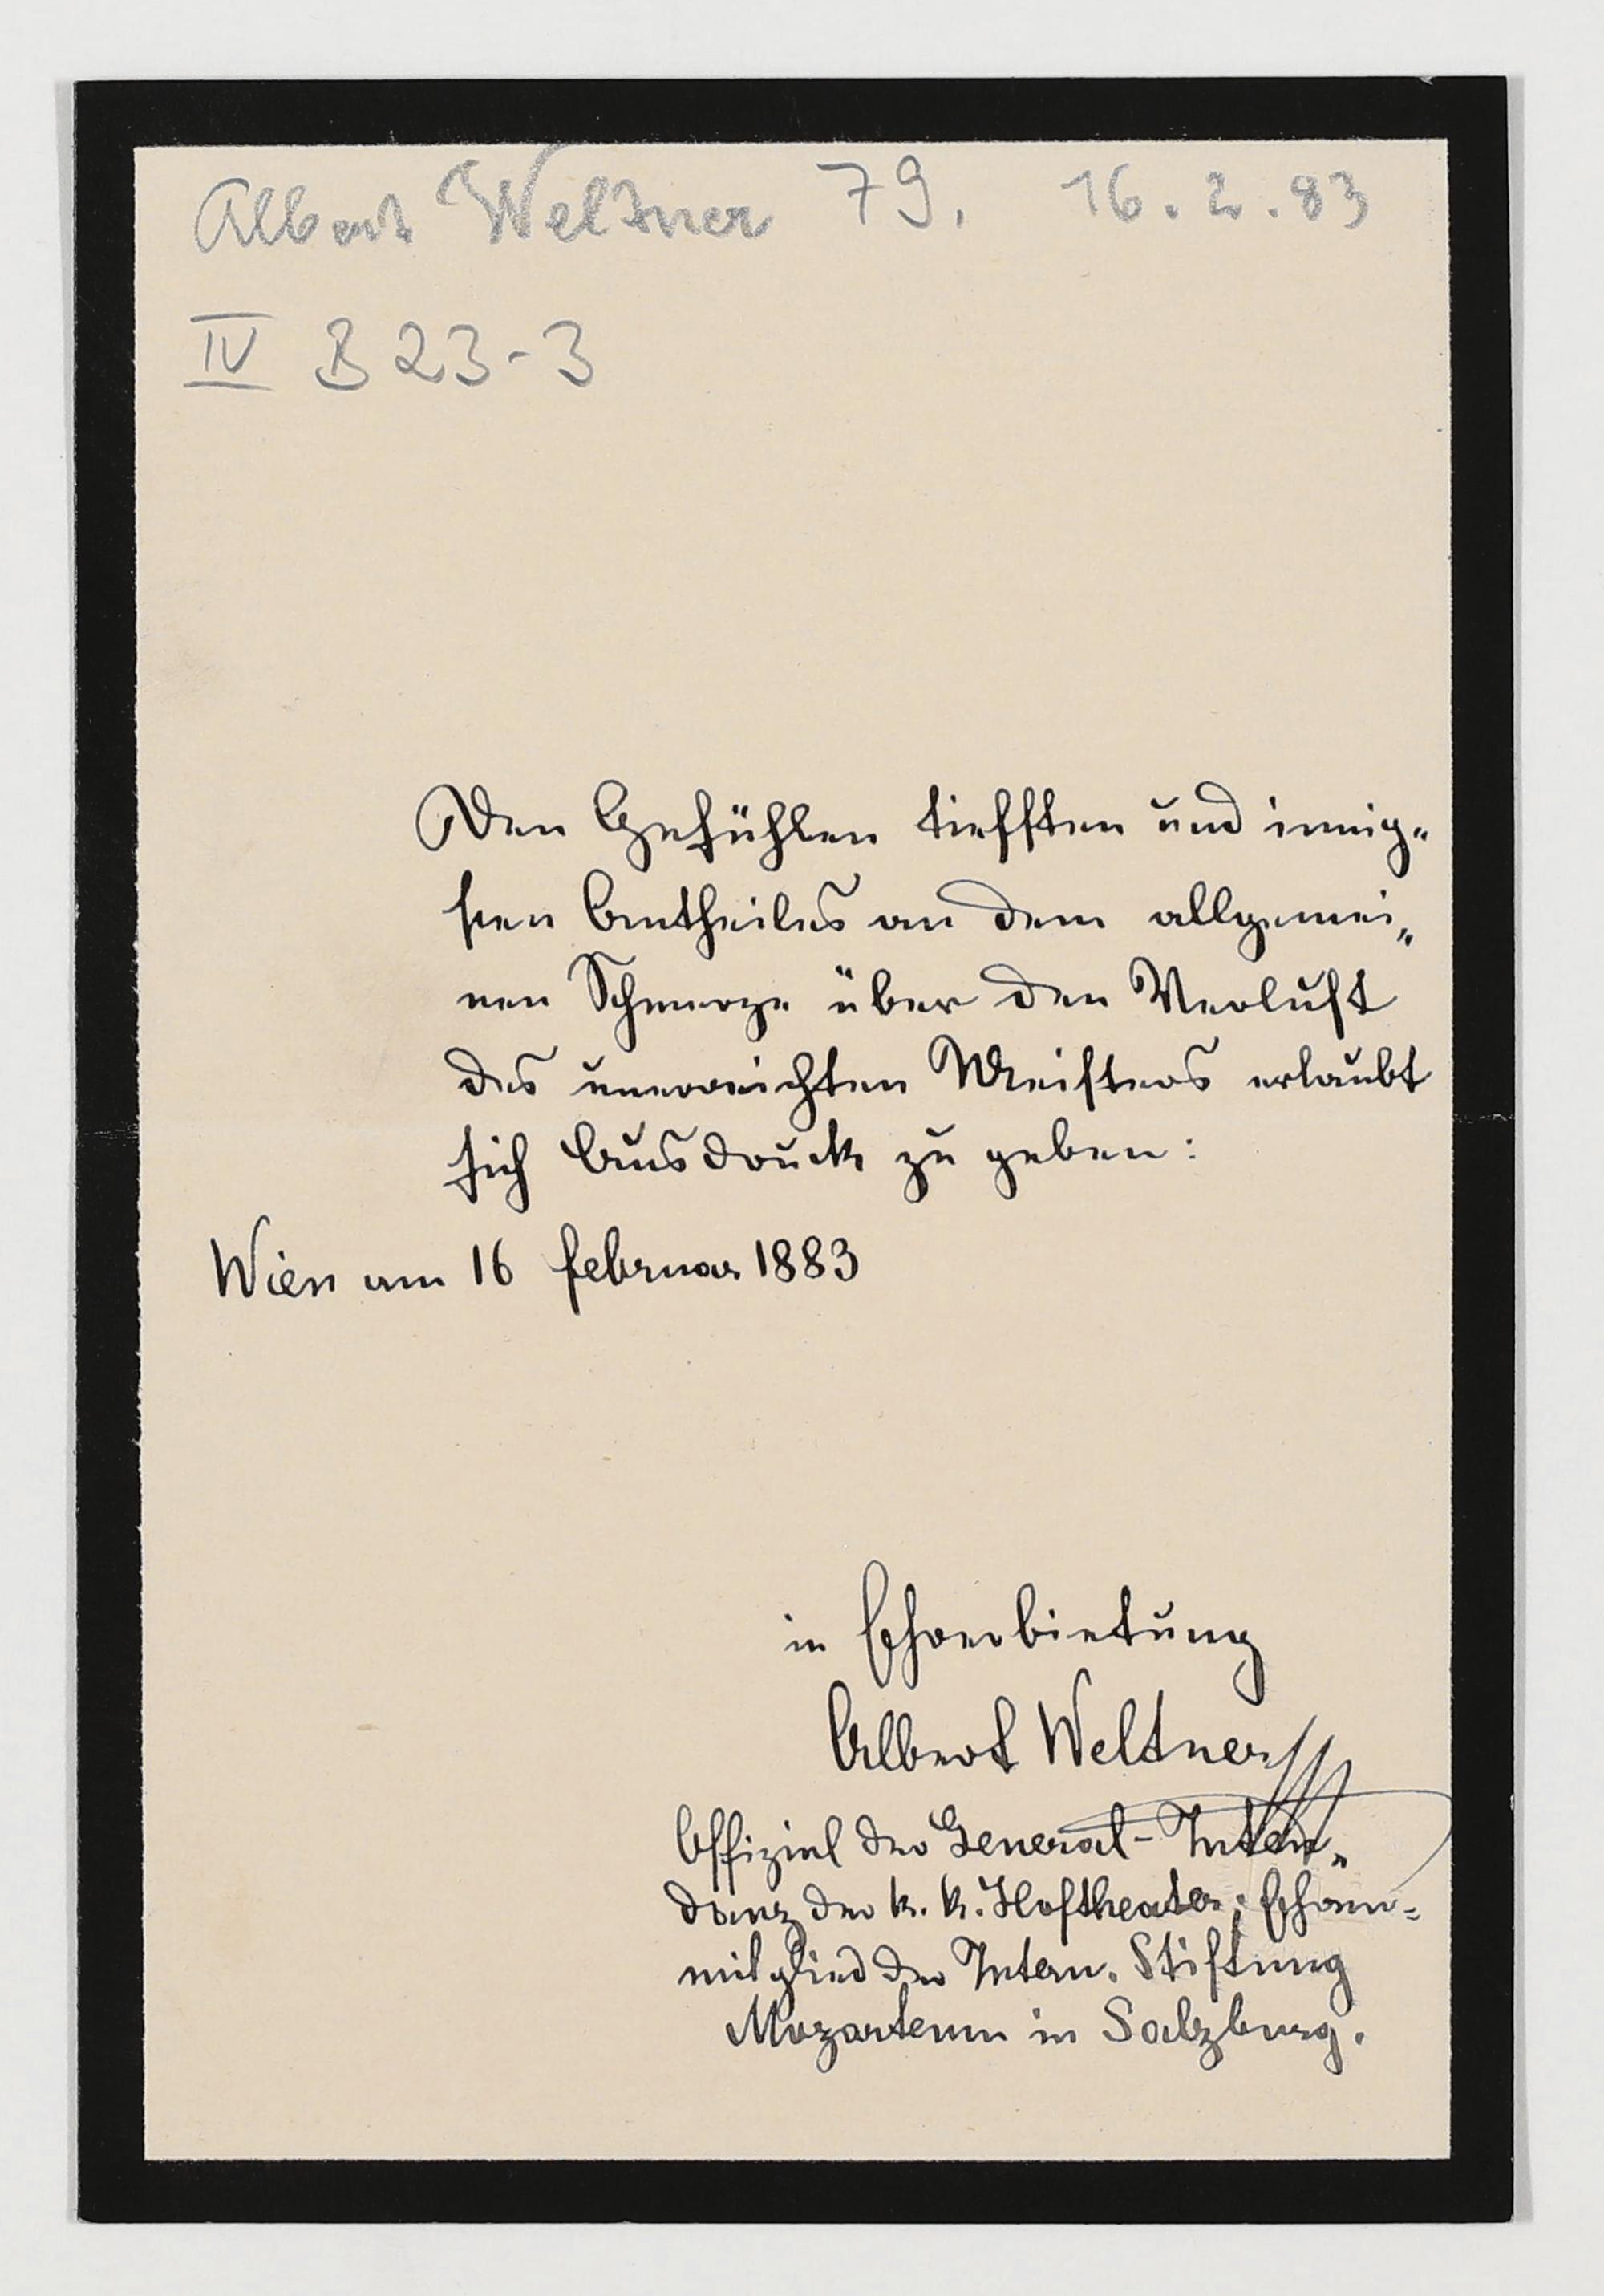 Albert Weltner 79. 16.2.83
IV B 23-3
Den Gefühlen tiefsten und innig„
sten Antheiles an dem allgemei„
nen Schmerze über den Verlust
des unerreichten Meisters erlaubt
sich Ausdruck zu geben:
Wien am 16 februar 1883
in Ehrerbietung
Albert Weltner
Offizial der General-Inten„
danz der k. k. Hoftheater; Ehren=
mitglied der Intern. Stiftung
Mozarteum in Salzburg.